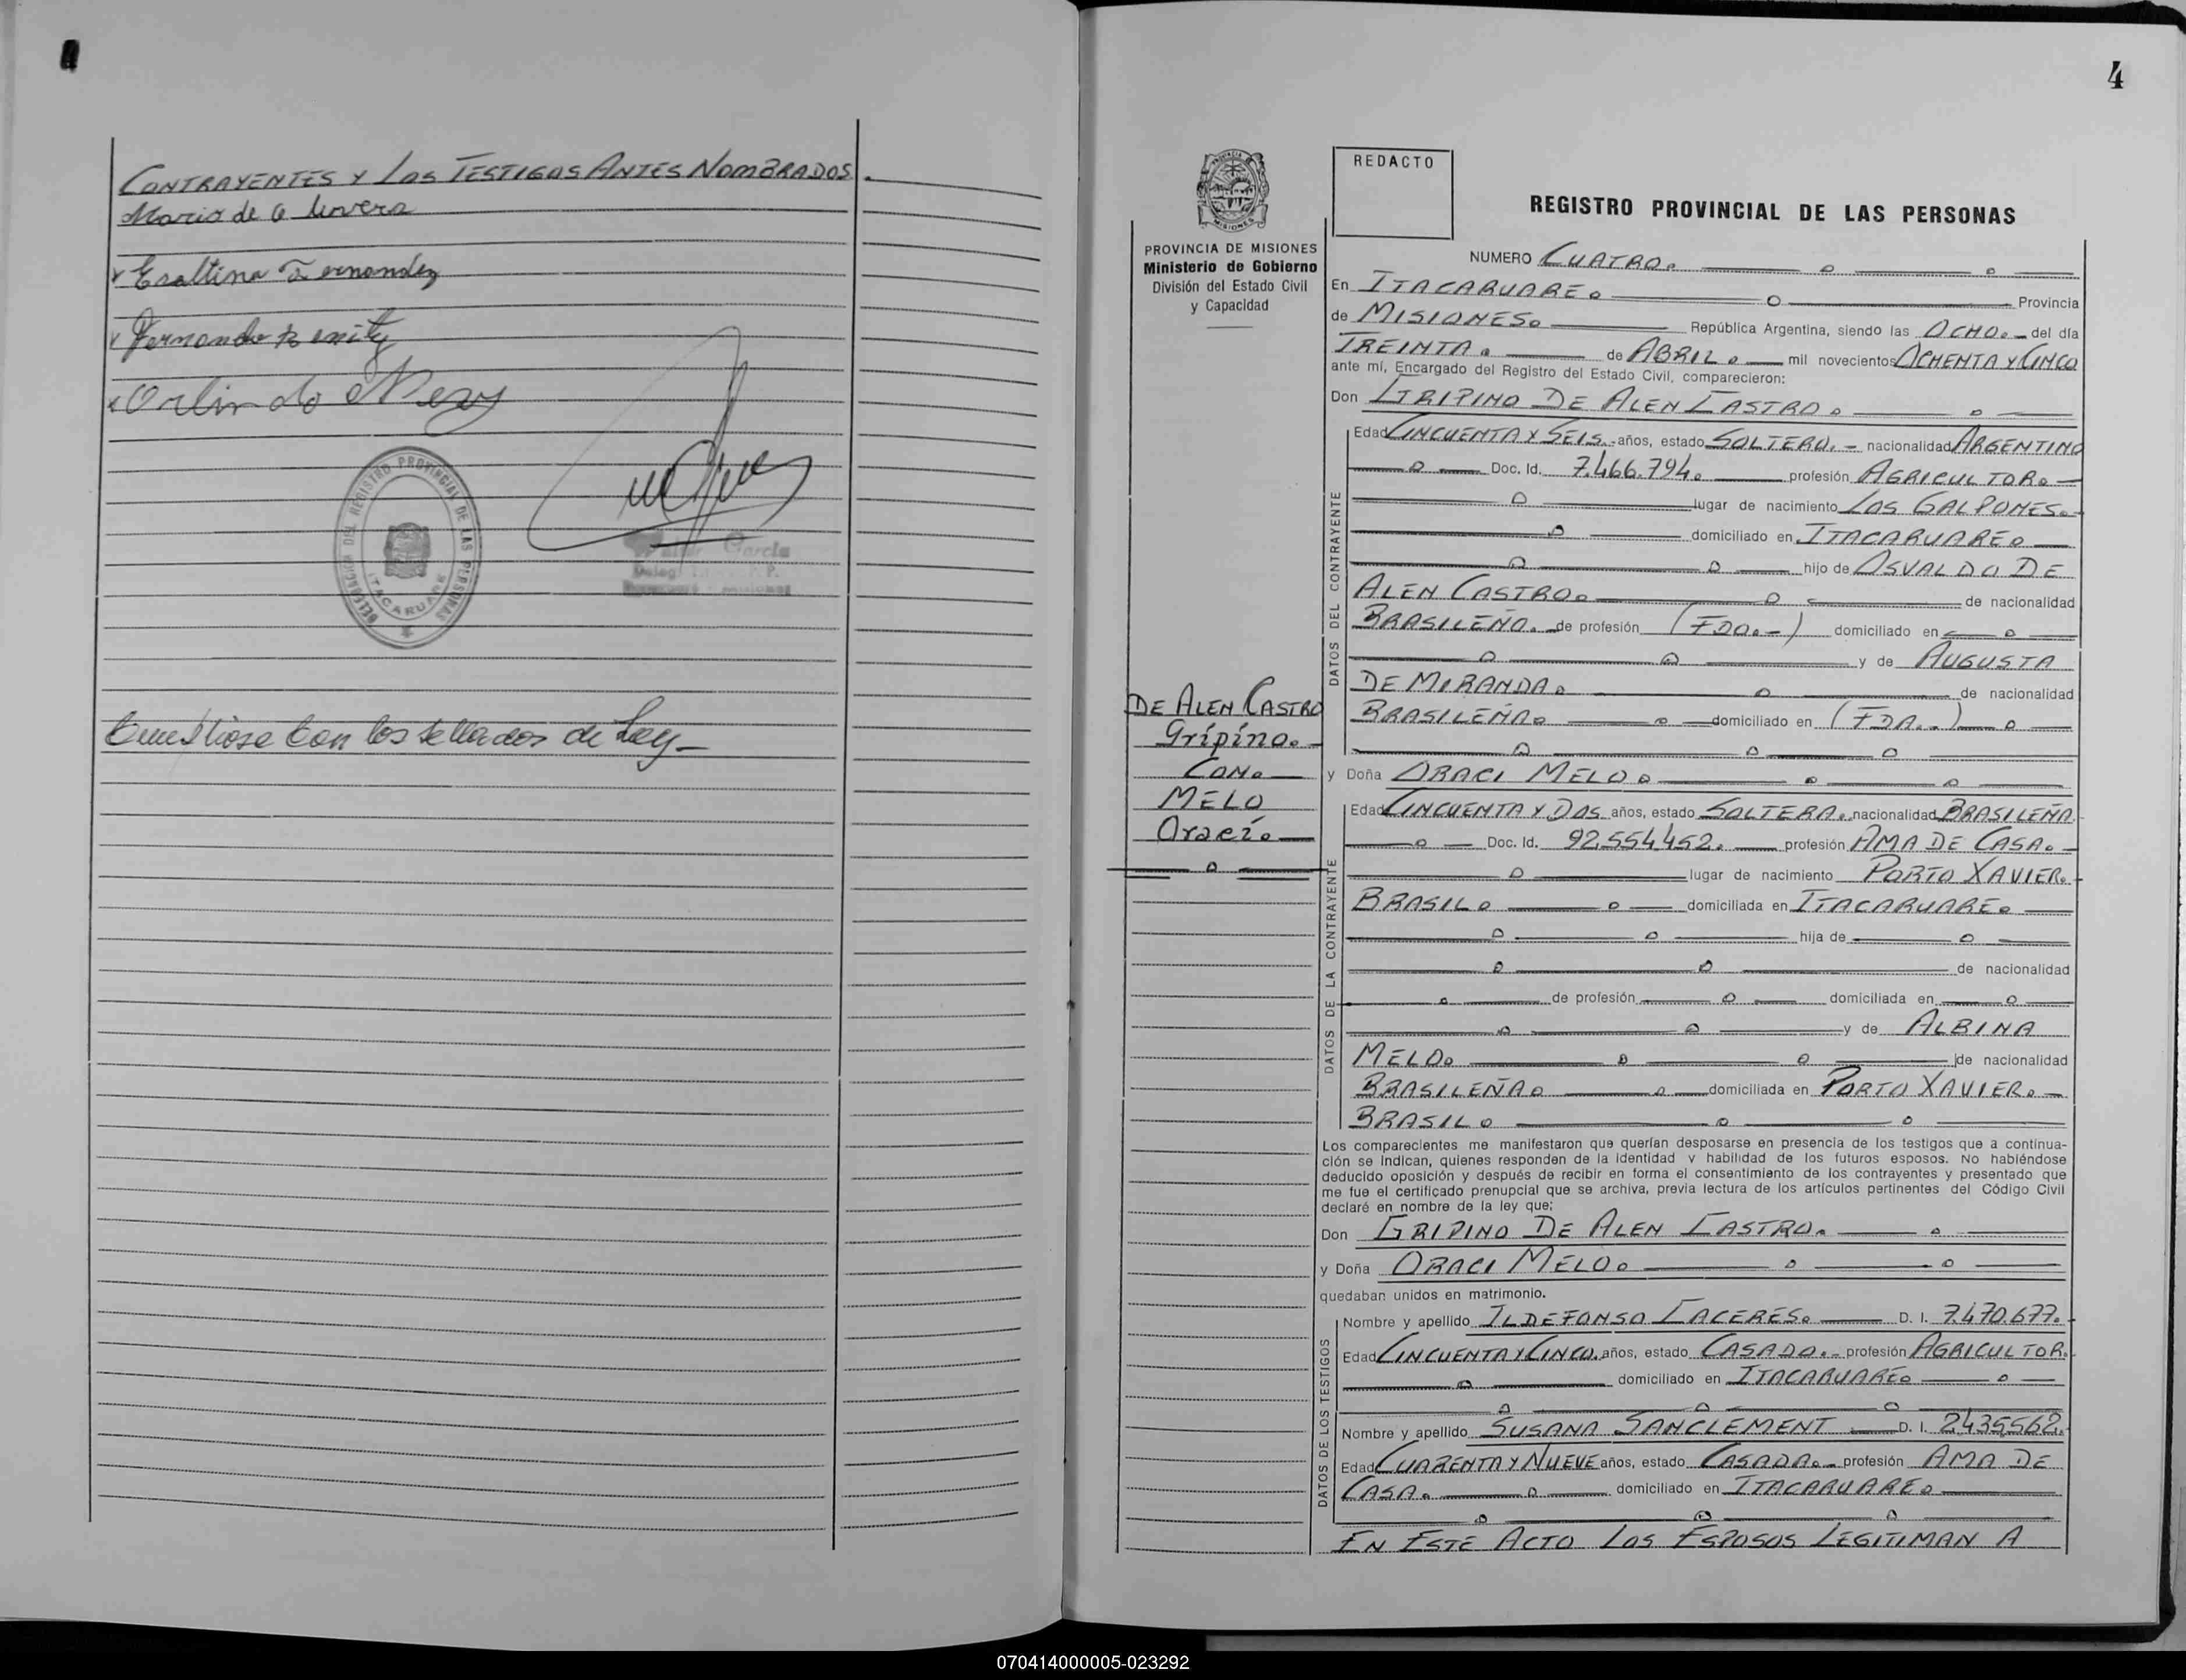 CONTRAYENTES Y LOS TESTIGOS ANTES NOMBRADOS.
Maria de
Ernandez
Fernando
Orlindo
DELEGACION DEL REGISTRO PROVINCIAL DE LAS PERSONAS
ITACARUARE
Garcia
con los sellados de Ley
4
PROVINCIA DE MISIONES
Ministerio de Gobierno
División del Estado Civil
y Capacidad
DE ALEN CASTRO
Gripino.
CON.
MELO
Oraci.
REDACTO
REGISTRO PROVINCIAL DE LAS PERSONAS
NUMERO CUATRO.
En ITACARUARE. Provincia
de MISIONES. República Argentina, siendo las OCHO. del día
TREINTA. de ABRIL. mil novecientos OCHENTA Y CINCO
ante mí, Encargado del Registro del Estado Civil, comparecieron:
Don GRIPINO DE ALEN CASTRO.
DATOS DEL CONTRAYENTE
Edad CINCUENTA Y SEIS.- años, estado SOLTERO.- nacionalidad ARGENTINO
Doc. Id. 7.466.794. profesión AGRICULTOR.
lugar de nacimiento LOS GALPONES.
domiciliado en ITACARUARE.
hijo de OSVALDO DE
ALEN CASTRO. de nacionalidad
BRASILEÑO. de profesión (FDO.-) domiciliado en
y de AUGUSTA
DE MIRANDA. de nacionalidad
BRASILEÑA. domiciliado en (FDA..)
y Doña ORACI MELO.
DATOS DE LA CONTRAYENTE
Edad CINCUENTA Y DOS años, estado SOLTERA. nacionalidad BRASILEÑA.
Doc. Id. 92.554.452. profesión AMA DE CASA.
lugar de nacimiento PORTO XAVIER.
BRASIL. domiciliada en ITACARUARE.
hija de
de nacionalidad
de profesión domiciliada en
y de ALBINA
MELO. de nacionalidad
BRASILEÑA. domiciliada en PORTO XAVIER.
BRASIL.
Los comparecientes me manifestaron que querían desposarse en presencia de los testigos que a continua-
ción se indican, quienes responden de la identidad y habilidad de los futuros esposos. No habiéndose
deducido oposición y después de recibir en forma el consentimiento de los contrayentes y presentado que
me fue el certificado prenupcial que se archiva, previa lectura de los artículos pertinentes del Código Civil
declaré en nombre de la ley que:
Don GRIPINO DE ALEN CASTRO.
y Doña ORACI MELO.
quedaban unidos en matrimonio.
DATOS DE LOS TESTIGOS
Nombre y apellido ILDEFONSO CACERES. D. I. 7.470.677.
Edad CINCUENTA Y CINCO. años, estado CASADO.- profesión AGRICULTOR.
domiciliado en ITACARUARE.
Nombre y apellido SUSANA SANCLEMENT D. I. 2.435.562.
Edad CUARENTA Y NUEVE años, estado CASADA.- profesión AMA DE
CASA. domiciliado en ITACARUARE.
EN ESTE ACTO LOS ESPOSOS LEGITIMAN A
070414000005-023292